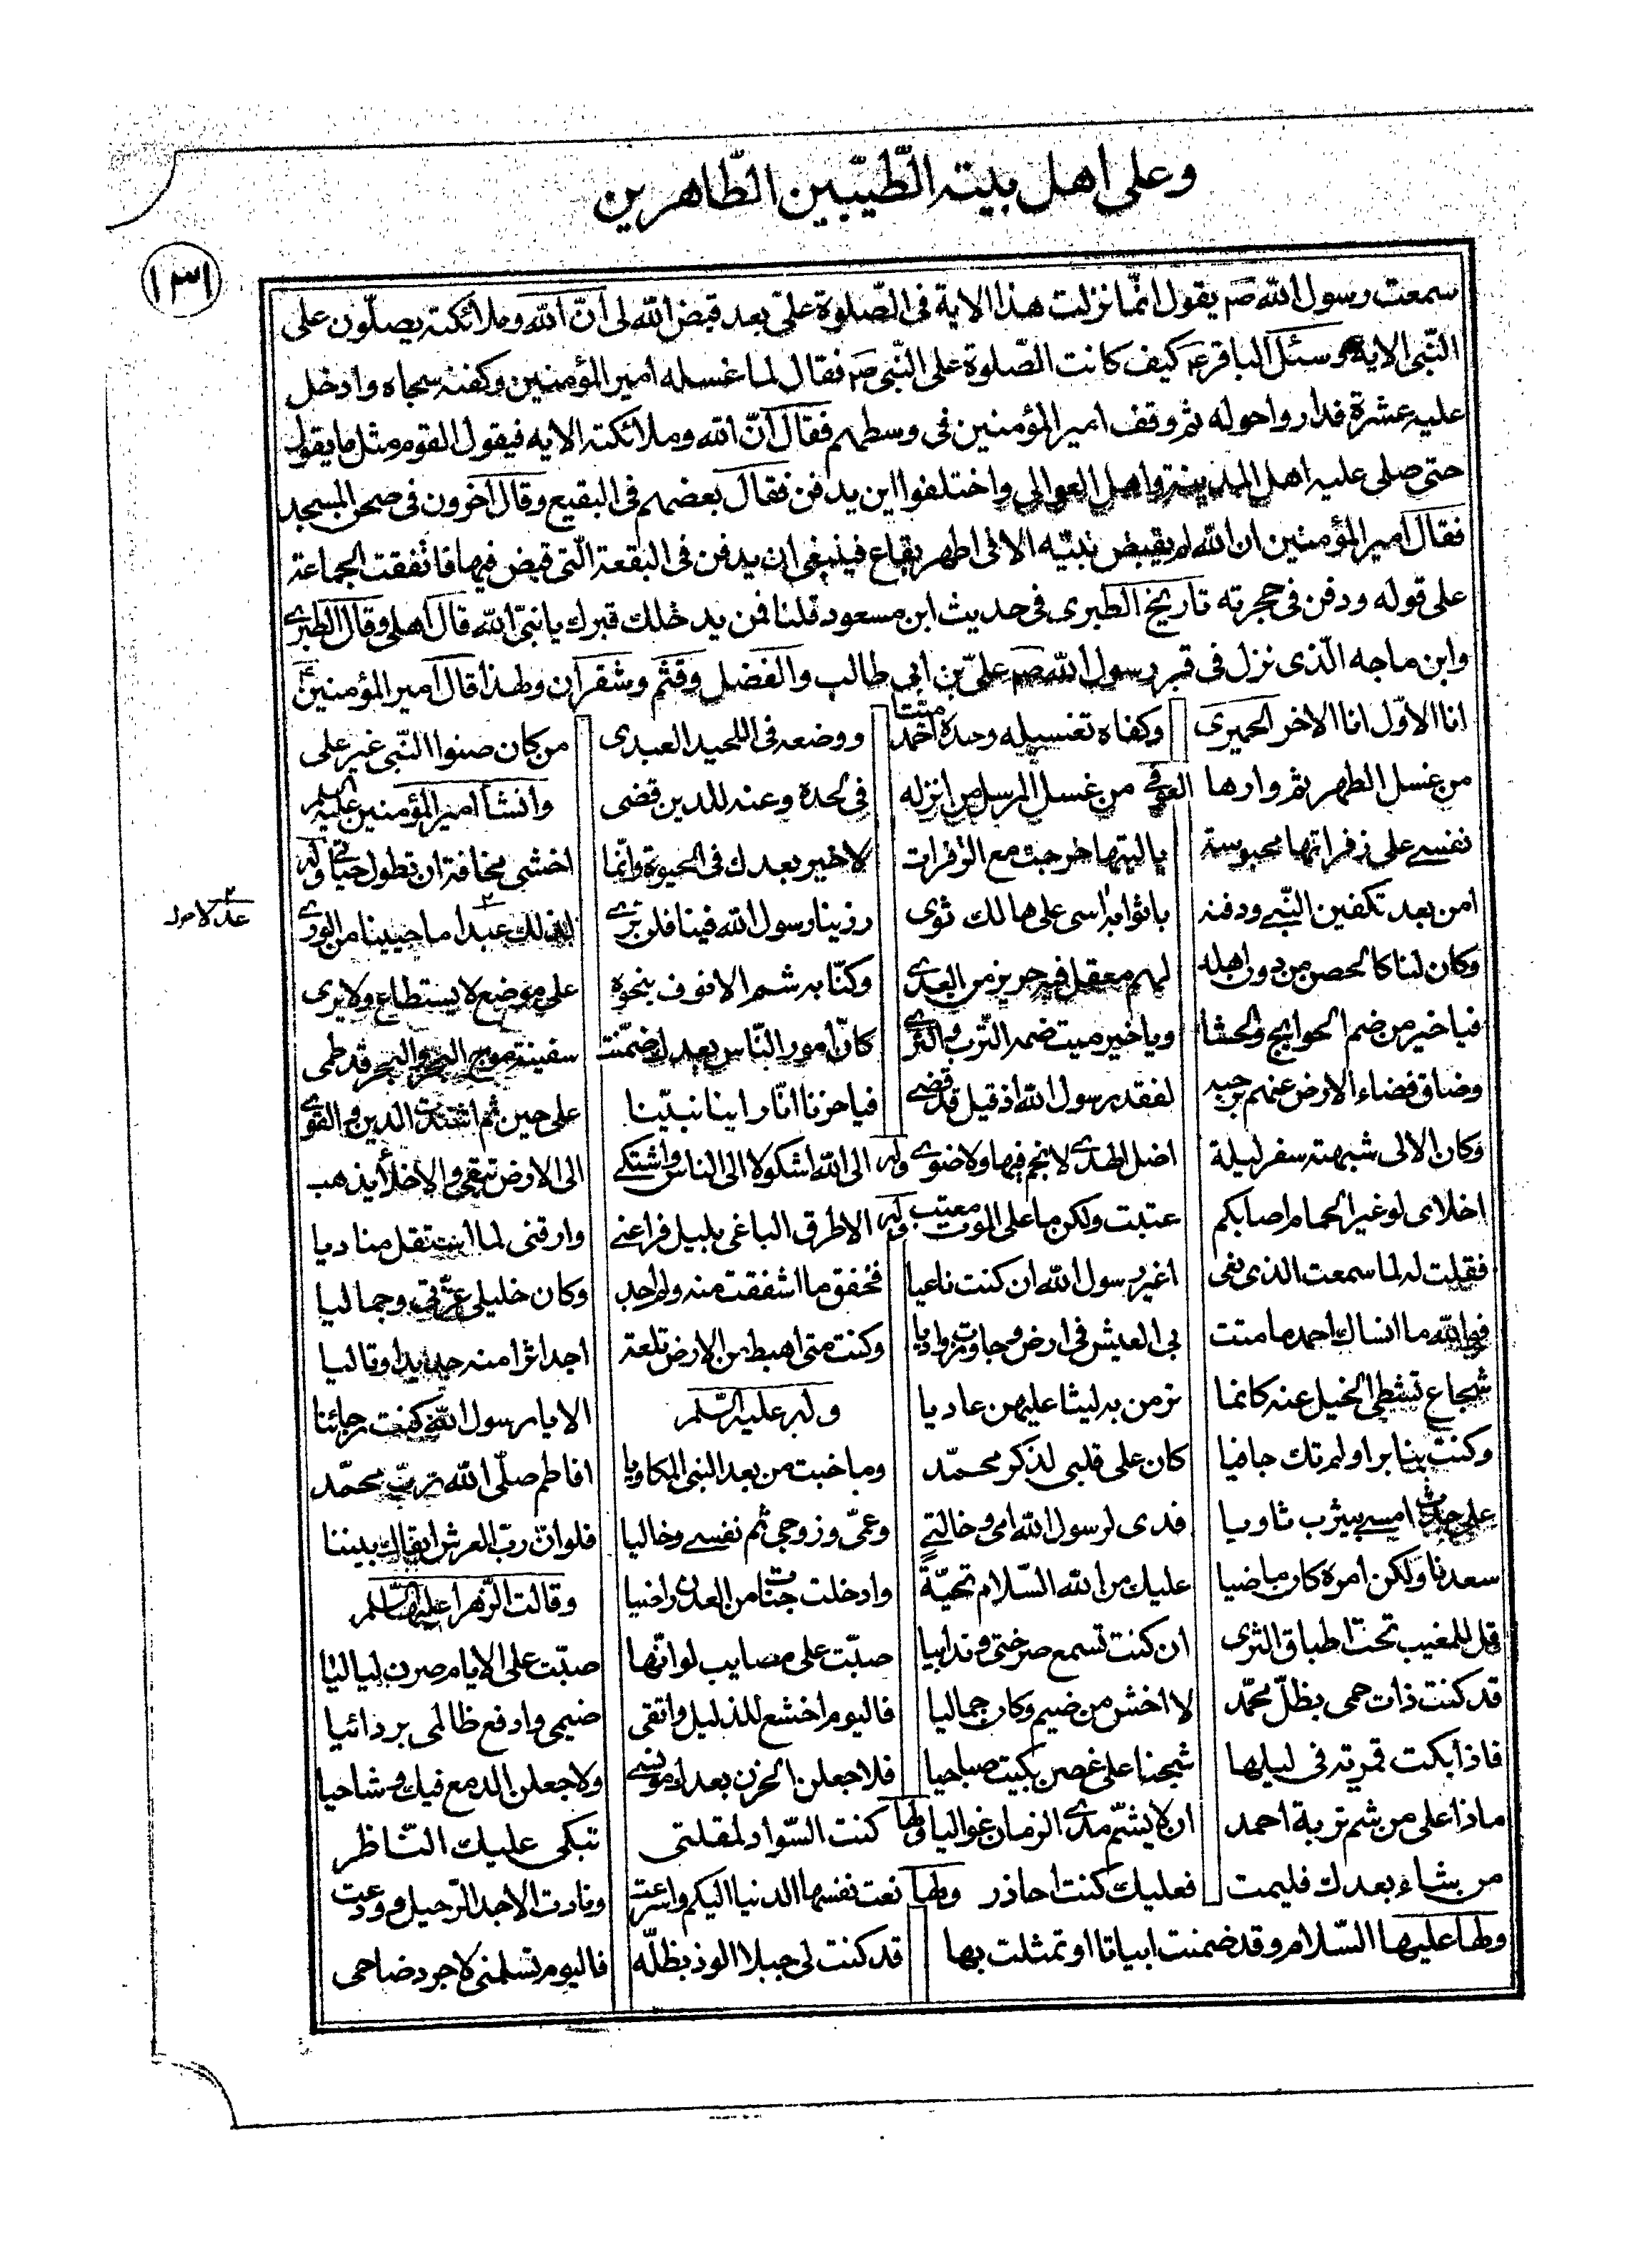 وعلى اهل بيته الطّيبّين الطّاهرين
١٣١
سمعت رسول الله ص يقول انّما نزلت هذا الاية فى الصّلوة علىّ بعد قبض الله لى انّ الله وملائكته يصلّون على
النّبى الاية وسئل الباقر ع كيف كانت الصّلوة على النّبى ص فقال لما غسله امير المؤمنين وكفنه سجاه وادخل
عليه عشرة فداروا حوله ثم وقف امير المؤمنين فى وسطهم فقال انّ الله وملائكته الايه فيقول القوم مثل ما يقول
حتى صلى عليه اهل المدينة واهل العوالى واختلفوا اين يدفن فقال بعضهم فى البقيع وقال اخرون فى صحن المسجد
فقال امير المؤمنين ان الله لم يقبض نبيّه الا فى اطهر بقاع فينبغى ان يدفن فى البقعة الّتى قبض فيها فاتّفقت الجماعة
على قوله ودفن فى حجرته تاريخ الطبرى فى حديث ابن مسعود قلنا فمن يدخلك قبرك يا نبىّ الله قال اهلى وقال الطبرى
وابن ماجه الّذى نزل فى قبر رسول الله ص علىّ بن ابى طالب والفضل وقثم وشقران ولهذا قال امير المؤمنين ع
انا الاوّل انا الاخر الحميرى وكفاه تغسيله وحده احمد ميتا ووضعه فى اللحيد العبدى من كان صنوا النّبى غير على
من غسل الطهر ثم وارها العوفى من غسل المرسل من انزله فى لحده وعنه للدين قضى وانشأ امير المؤمنين عليه السلم
نفسى على زفراتها محبوسة يا ليتها خرجت مع الزفرات لا خير بعدك فى الحيوة وانّما اخشى مخافة ان تطول حياتى وله
امن بعد تكفين النّبى ودفنه باثوابه اسى على هالك ثوى رزينا رسول الله فينا فلن نرى لذلك عبدا ما حيينا من الورى
عدلا صوله
وكان لنا كالحصن من دون اهله لهم معقل فيه حريز من العدى وكنّا به شم الانوف بنحوه على موضع لا يستطاع ولا يرى
فيا خير من ضم الحوايج والحشا ويا خير ميت ضمه التّرب والثرى كانّ امور النّاس بعدك ضمّنت سفينة موج البحر والبحر قد طمى
وضاق فضاء الارض عنهم برحبه لفقد رسول الله اذ قيل قد قضى فيا حزنا انّا راينا نبيّنا على حين ثم اشتدت الدين والقوى
وكان الالى شبهته سفر ليلة اضل الهدى لا نجم فيها ولا ضوى وله الى الله اشكو لا الى الناس واشتكى الى الارض تبقى والاخلّاء يذهب
اخلاى لو غير الحمام اصابكم عتبت ولكن ما على الموت معتب وله الا طرق الباغى بليل فراعنى وارقنى لما استقل مناديا
فقلت له لما سمعت الذى نعى اغير رسول الله ان كنت ناعيا فخفق ما اشفقت منه ولم احب وكان خليلى عزّتى وجماليا
فوالله ما انساك احمد ما مشت بى العيش فى ارض وجاوزت واديا وكنت متى اهبط من الارض تلعة اجد اثرا منه جديدا وقاليا
شجاع تشظى الخيل عنه كانما ترمن به ليثا عليهن عاديا وله عليه السّلم الا يا رسول الله كنت رجائنا
وكنت بنا برا ولم تك جافيا كان على قلبى لذكر محمّد وما خبت من بعد النبى المكاويا افاطم صلّى الله ربّ محمّد
على جدث امسى بيثرب ثاويا فدى لرسول الله امى وخالتى وعمّى وزوجى ثم نفسى وخاليا فلو انّ ربّ العرش ابقاك بيننا
سعدنا ولكن امره كان ماضيا عليك من الله السّلام تحيّةً وادخلت جنّات من العدن راضيا وقالت الزّهرا عليها السّلم
قل للمغيب تحت اطباق الثرى ان كنت تسمع صرختى وندائيا صبّت على مصايب لو انّها صبّت على الايام صرن لياليا
قد كنت ذات حمى بظلّ محمّد لا اخش من ضيم وكان جماليا فاليوم اخشع للذليل واتقى ضيمى وادفع ظالمى بردائيا
فاذا بكت قمرية فى ليلها شجنا على غصن بكيت صباحيا فلاجعلن الحزن بعدك مونسى ولاجعلن الدمع فيك وشاحيا
ماذا على من شم تربة احمد ان لا يشمّ مدى الزمان غواليا ولها كنت السّواد لمقلتى تبكى عليك النّاظر
من شاء بعدك فليمت فعليك كنت احاذر ولها نعت نفسها الدنيا اليكم واسرعت ونادت الا جد الرّحيل وودعت
ولها عليها السّلام وقد ضمنت ابياتا او تمثلت بها قد كنت لى جبلا الوذ بظلّه فاليوم تسلمنى لاجرد ضاحى